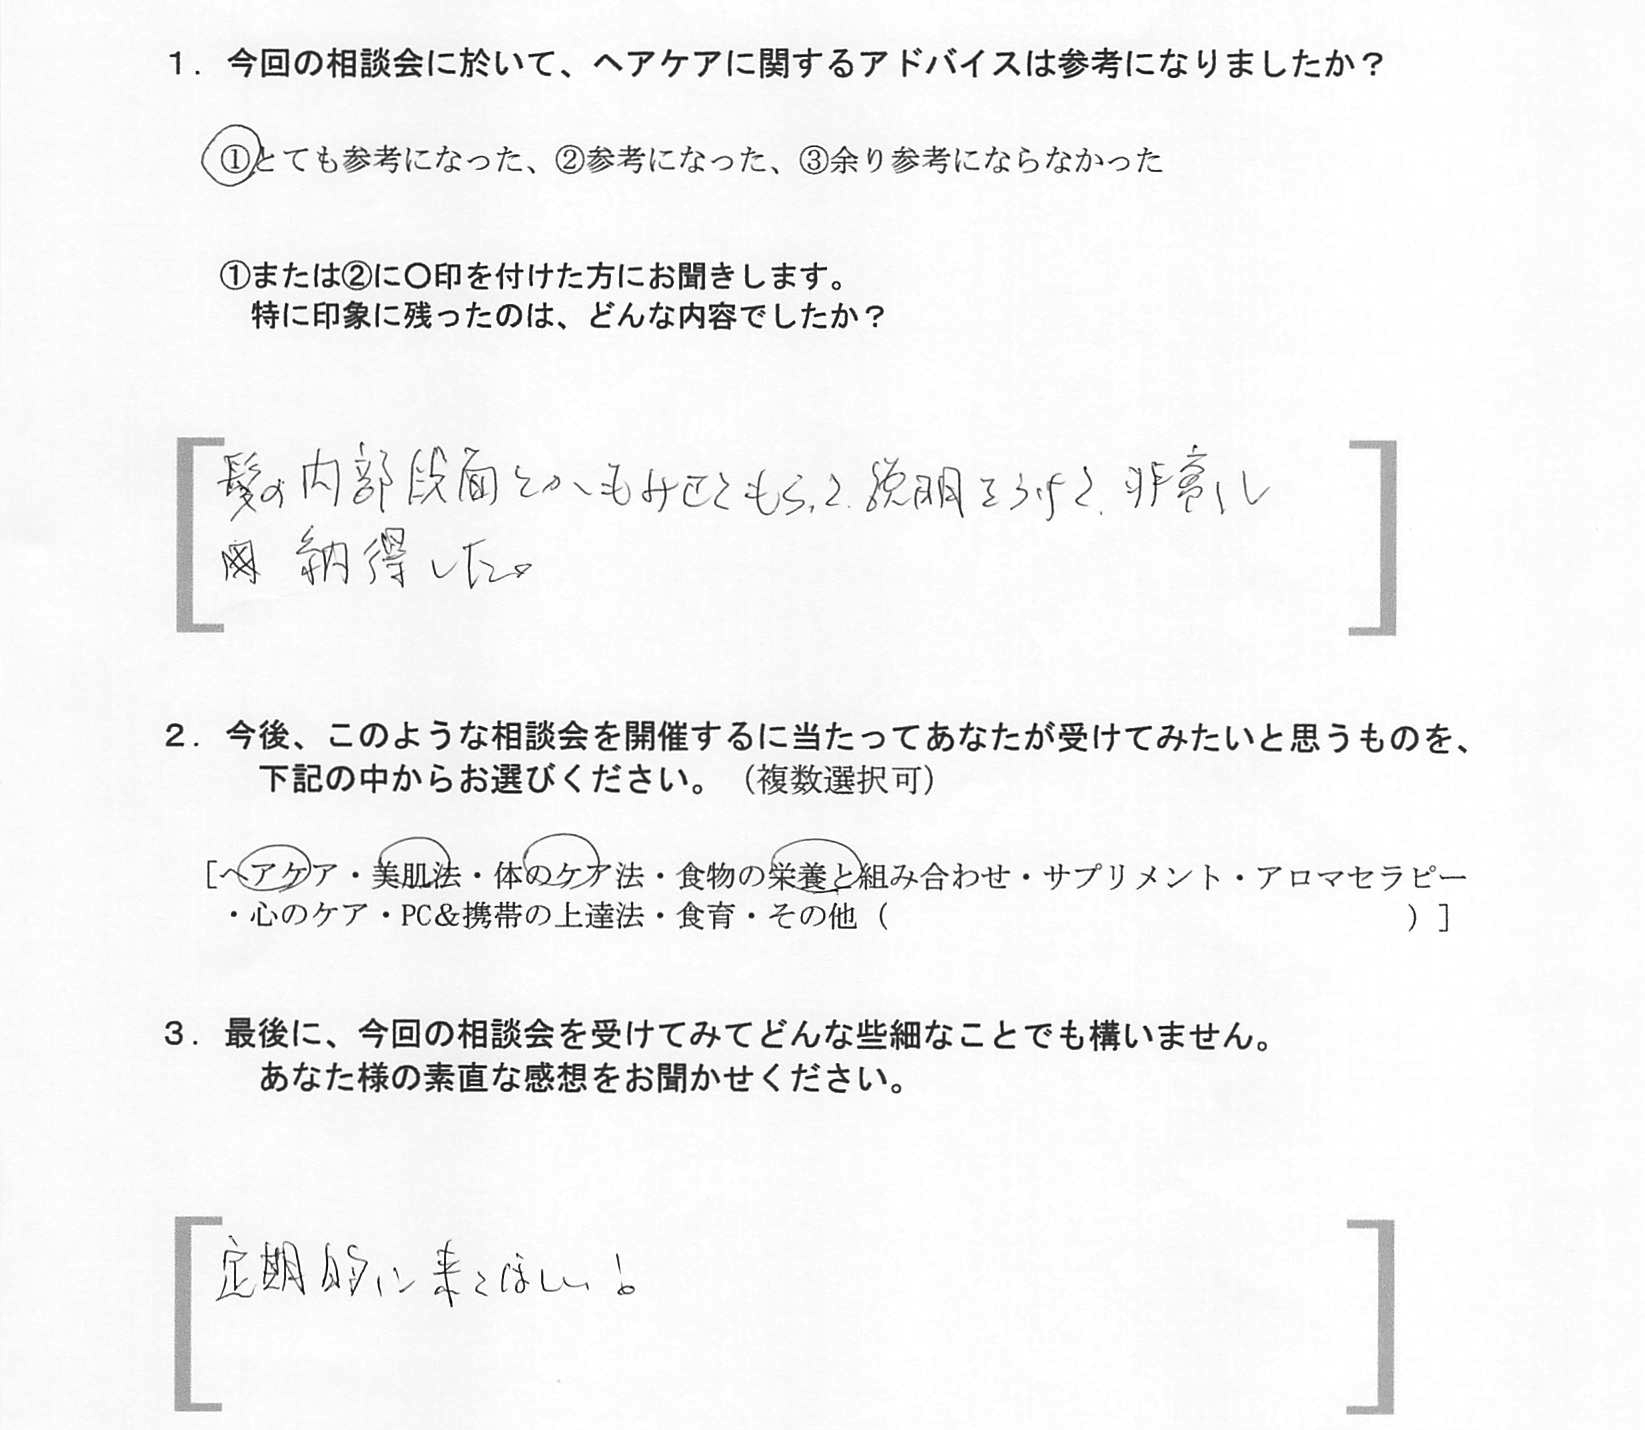 1．今回の相談会に於いて、ヘアケアに関するアドバイスは参考になりましたか？
①とても参考になった、②参考になった、③余り参考にならなかった
①または②に〇印を付けた方にお聞きします。
特に印象に残ったのは、どんな内容でしたか？
髪の内部段面とかもみせてもらって、説明をうけて、非常に
納得した。
2．今後、このような相談会を開催するに当たってあなたが受けてみたいと思うものを、
下記の中からお選びください。（複数選択可）
［ヘアケア・美肌法・体のケア法・食物の栄養と組み合わせ・サプリメント・アロマセラピー
・心のケア・PC＆携帯の上達法・食育・その他（　　　）］
3．最後に、今回の相談会を受けてみてどんな些細なことでも構いません。
あなた様の素直な感想をお聞かせください。
定期的に来てほしい！